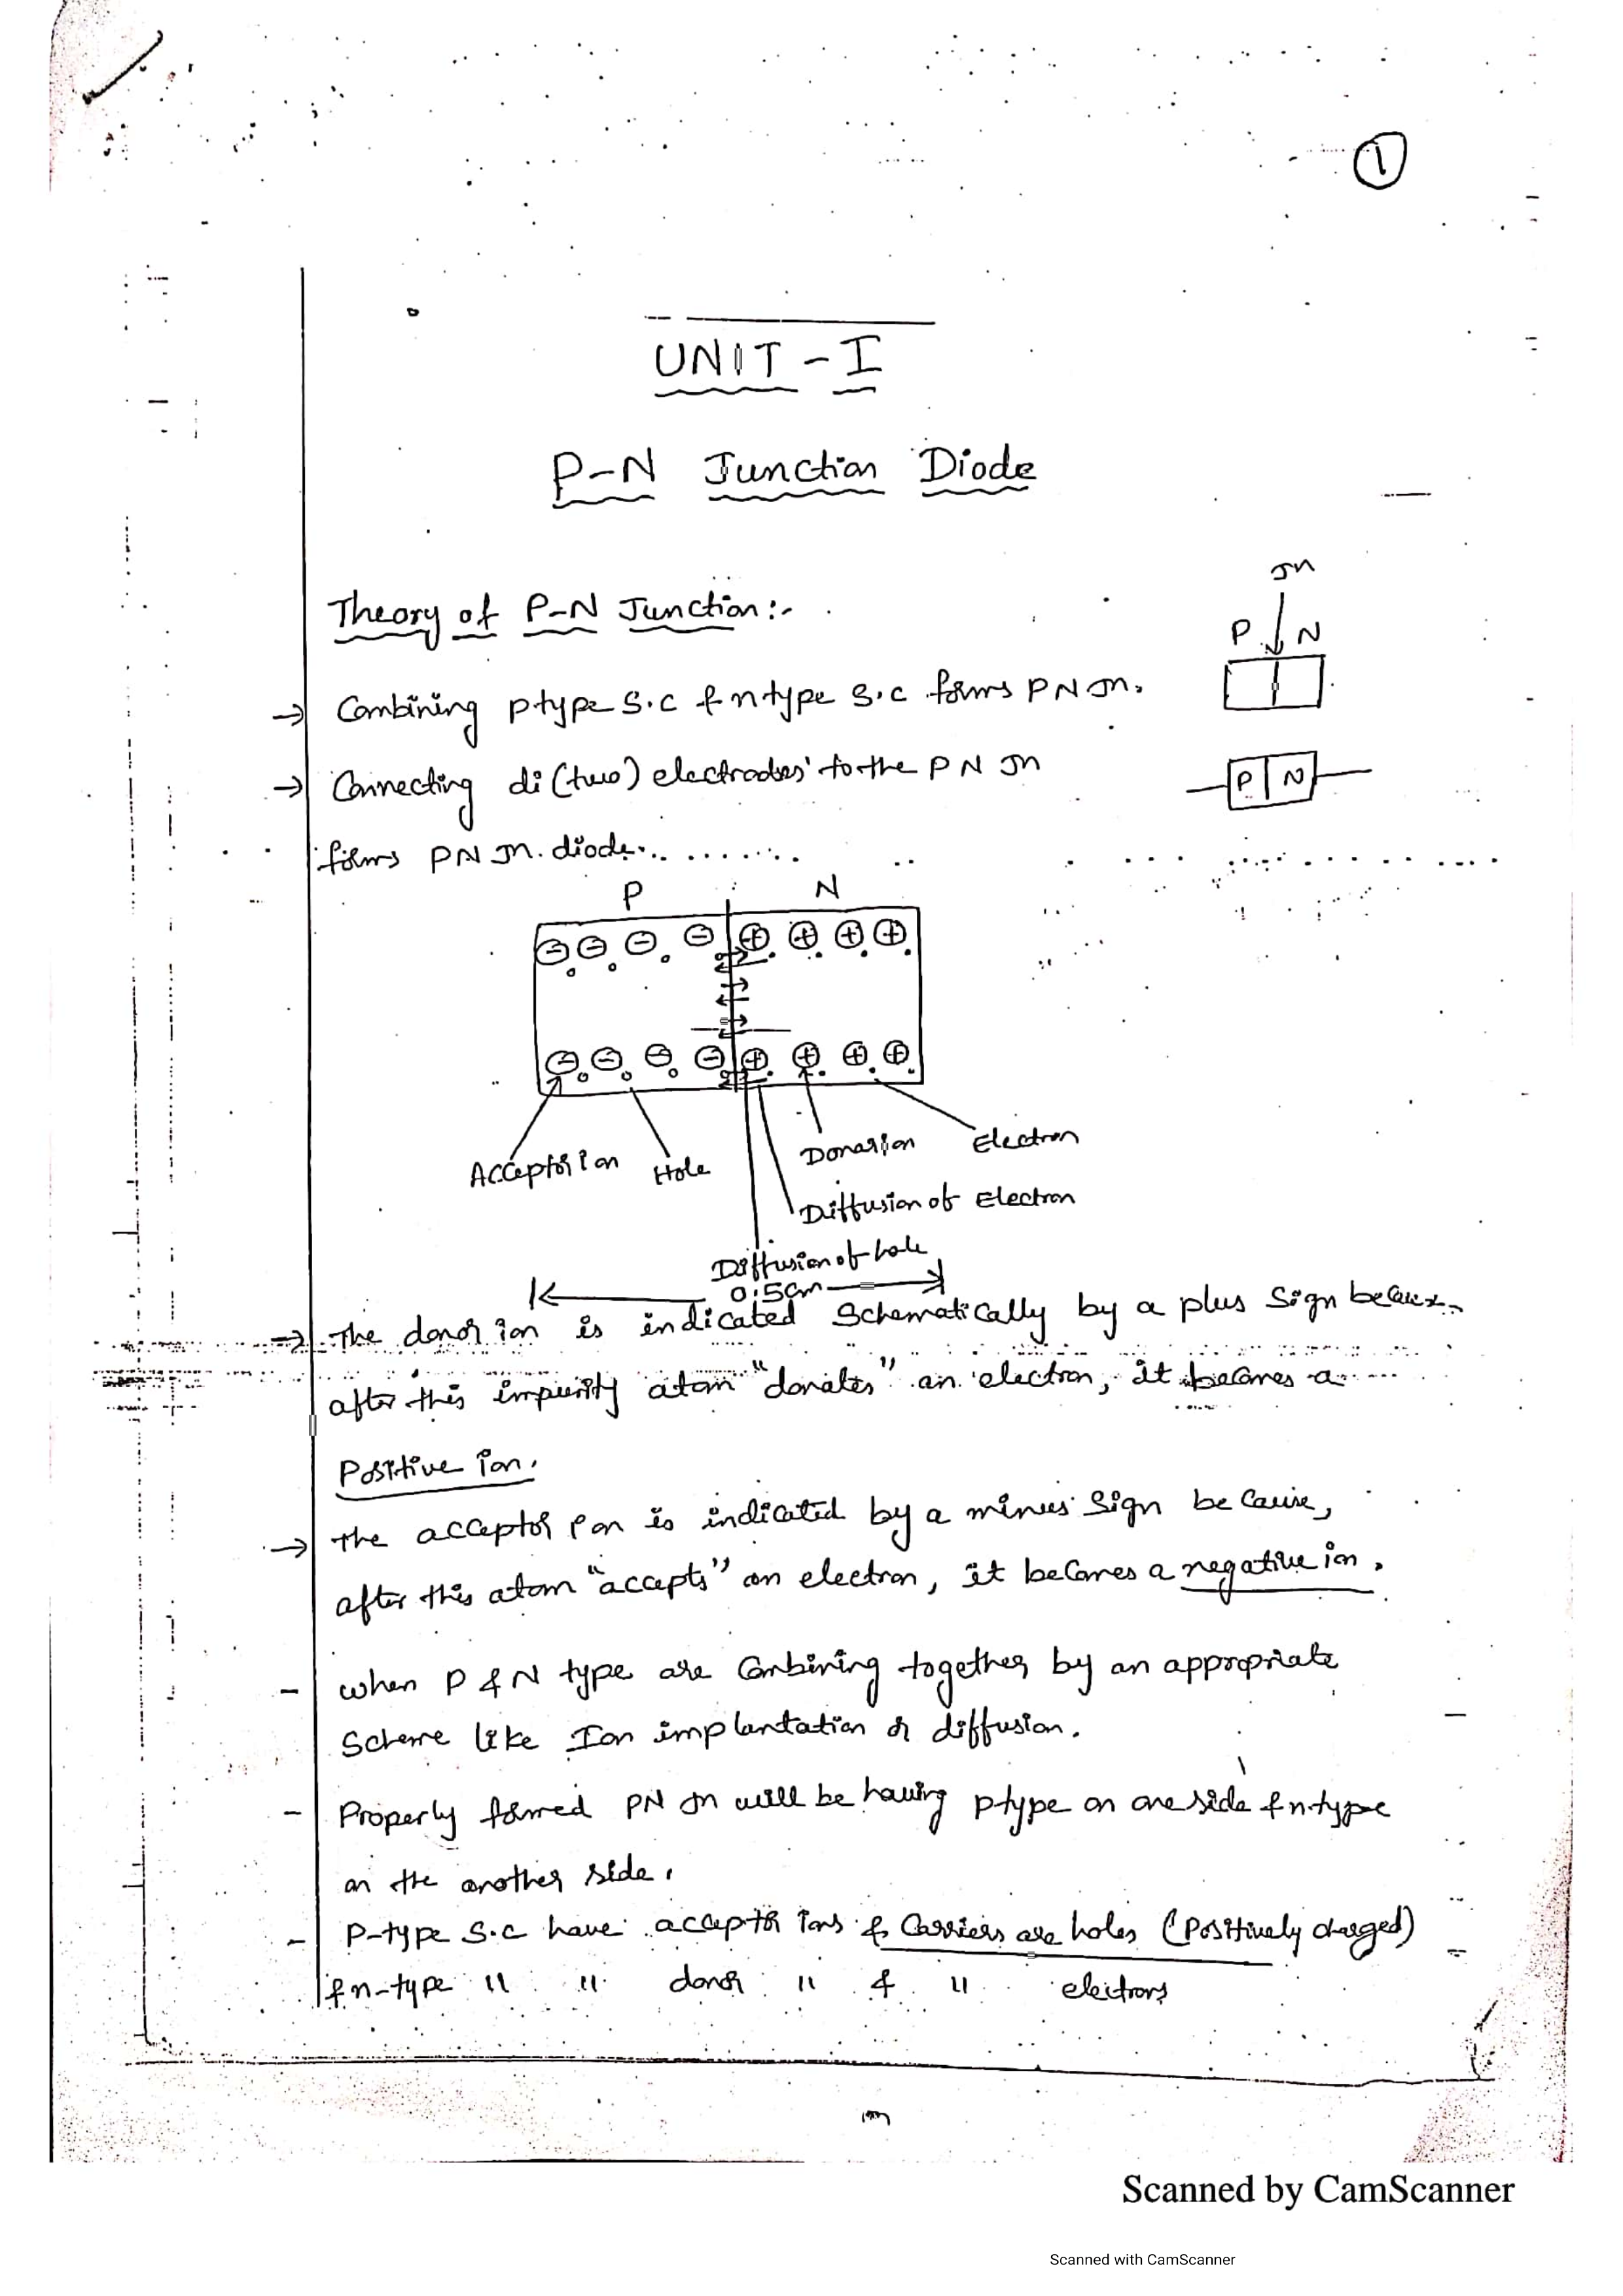 1
UNIT - I
P-N Junction Diode
Jn
Theory of P-N Junction:-
P N
→ Combining p type S.C & n type S.C forms PN Jn.
→ Connecting di (two) electrodes to the PN Jn
P N
forms PN Jn. diode.
P N
Acceptor ion Hole Donor ion Electron
Diffusion of Electron
Diffusion of hole
0.5cm
→ The donor ion is indicated Schematically by a plus Sign because
after this impurity atom "donates" an electron, it becomes a
Positive ion.
→ The acceptor ion is indicated by a minus Sign because,
after this atom "accepts" an electron, it becomes a negative ion.
- when P & N type are Combining together by an appropriate
Scheme like Ion implantation or diffusion.
- Properly formed PN Jn will be having p type on one side & n type
on the another side.
- P-type S.C have acceptor ions & Carriers are holes (Positively charged)
& n-type " " donor " & " electrons
Scanned by CamScanner
Scanned with CamScanner